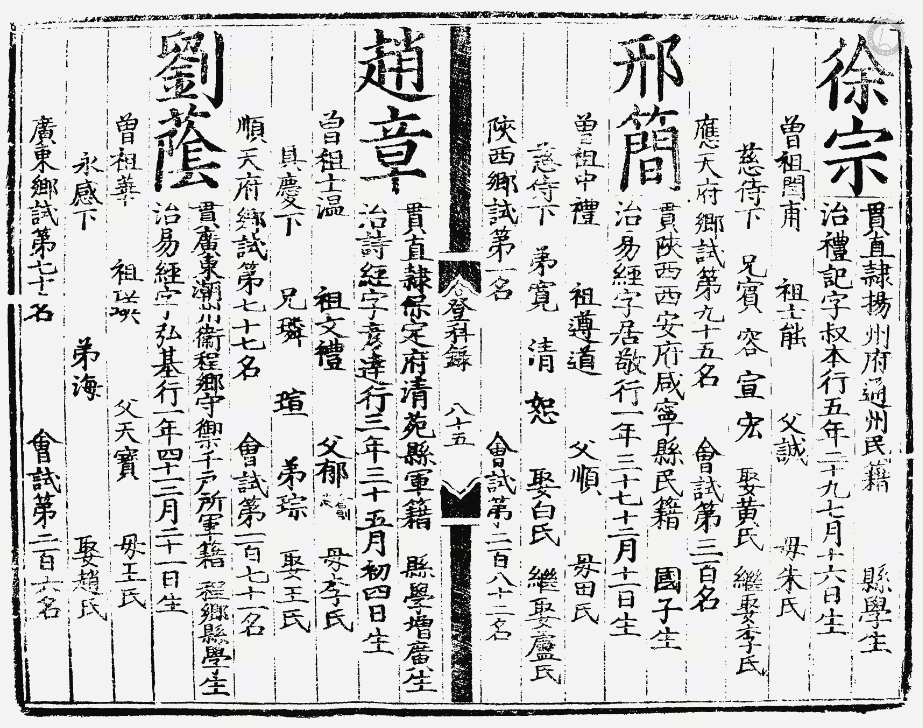 徐宗
貫直隸揚州府通州民籍 縣學生
治禮記字叔本行五年二十九七月十六日生
曾祖閏甫 祖士能 父誠 母朱氏
慈侍下 兄賓 容 宣 宏 娶黃氏 繼娶李氏
應天府鄉試第九十五名 會試第三百名
邢簡
貫陝西西安府咸寧縣民籍 國子生
治易經字居敬行一年三十七十二月十一日生
曾祖中禮 祖遵道 父順 母田氏
慈侍下 弟寬 清 恕 娶白氏 繼娶盧氏
陝西鄉試第一名 會試第二百八十二名
登科錄 八十五
趙章
貫直隸保定府清苑縣軍籍 縣學增廣生
治詩經字彥達行三年三十五月初四日生
曾祖士溫 祖文禮 父郁 母李氏
具慶下 兄璘 瑄 弟琮 娶王氏
順天府鄉試第七十七名 會試第一百七十一名
劉蔭
貫廣東潮州衞程鄉守禦千戶所軍籍 程鄉縣學生
治易經字弘基行一年四十三月二十一日生
曾祖華 祖瑛 父天寶 母王氏
永感下 弟海 娶趙氏
廣東鄉試第七十一名 會試第二百六名